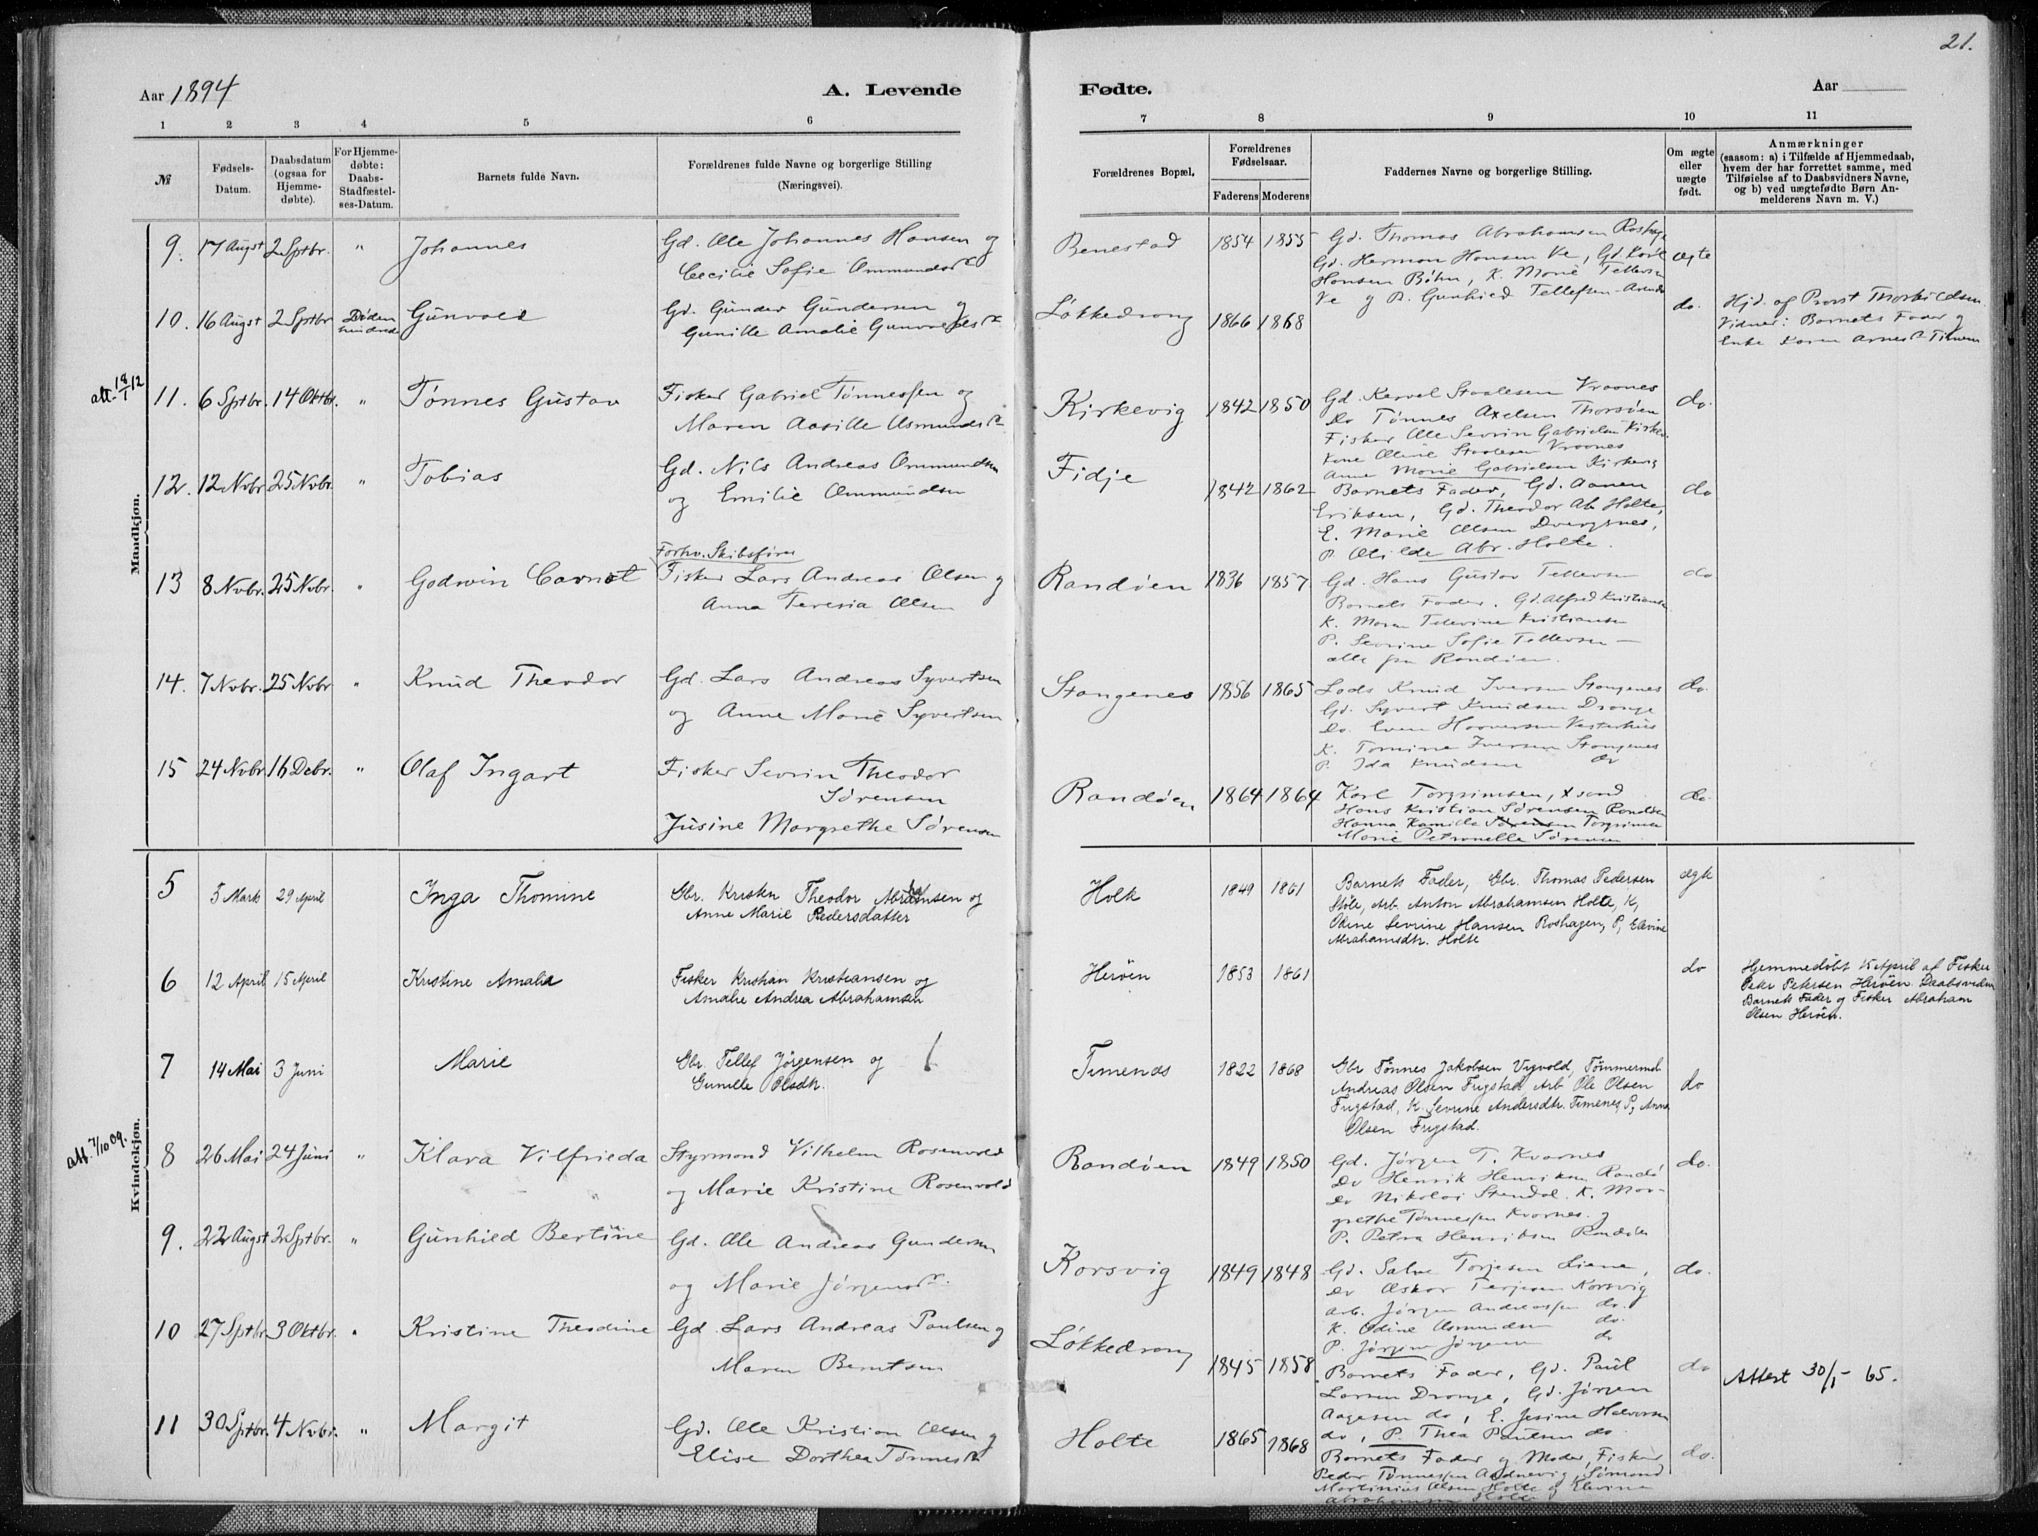 21.
Aar 1894
A. Levende
Fødte.
Aar
1 2 3 4 5 6 7 8 9 10 11
№
Fødsels-
Datum.
Daabsdatum
(ogsaa for
Hjemme-
døbte).
For Hjemme-
døbte:
Daabs-
Stadfæstel-
ses-Datum.
Barnets fulde Navn.
Forældrenes fulde Navne og borgerlige Stilling
(Næringsvei).
Forældrenes Bopæl.
Forældrenes
Fødselsaar.
Faderens Moderens
Faddernes Navne og borgerlige Stilling.
Om ægte
eller
uægte
født.
Anmærkninger
(saasom: a) i Tilfælde af Hjemmedaab,
hvem der har forrettet samme, med
Tilføielse af to Daabsvidners Navne,
og b) ved uægtefødte Børn An-
melderens Navn m. V.)
Mandkjøn.
9. 17 Augst 2 Sptbr. " Johannes
Gd. Ole Johannes Hansen og
Cecilie Sofie
Benestad 1854 1855
Gd. Thomas Abrahamsen
Gd. Herman Hansen Ve, Gd.
Hansen Bøhn, K. Marie Tellevsen
Ve og P. Gunhild Tellefsen
ægte
10. 16 Augst 2 Sptbr
Gunvald
Gd. Gunder Gundersen og
Gunille Amalie
Løkkedrong 1866 1868
do.
Hjd. af Provst
Vidner: Barnets Fader og
Enke Karen
att. 18/1 12
11. 6 Sptbr. 14 Oktbr. " Tønnes Gustav
Fisker Gabriel Tønnessen og
Maren Aasille
Kirkevig 1842 1850
Gd. Staalesen Vraanes
Do Tønnes Axelsen Thorsøen
Fisker Ole Sevrin Gabrielsen
Kone Oline Staalesen Vraanes
Anne Marie Gabrielsen Kirkevig
do.
12. 12 Nvbr 25 Nvbr. " Tobias
Gd. Nils Andreas Ommundsen
og Emilie Ommundsen
Fidje 1842 1862
Barnets Fader, Gd. Aanen
Eriksen, Gd. Theodor Ab. Holte,
E. Marie Olsen Dvergsnes,
P. Olilde Abr. Holte.
do
13 8 Nvbr. 25 Nvbr. " Godwin Carnot
Forhv. Skibsfører
Fisker Lars Andreas Olsen og
Anna Teresia Olsen
Randøen 1836 1857
Gd. Hans Gustav Tellevsen
Barnets Fader. Gd. Alfred Kristiansen
K. Maren Kristiansen
P. Sevrine Sofie Tellevsen —
alle fra Randøen.
do
14. 7 Nvbr. 25 Nvbr " Knud Theodor
Gd. Lars Andreas Syvertsen
og Anne Marie Syvertsen
Stangenes 1856 1865
Lods Knud Iversen Stangenes
Gd. Syvert Knudsen Drange
Do. Even Haaversen
K. Tomine Iversen Stangenes
P. Ida Knudsen do
do.
15 24 Nvbr. 16 Debr. " Olaf Ingart
Fisker Sevrin Theodor
Sørensen
Jusine Margrethe Sørensen
Randøen 1864 1864
Karl Torgrimsen, Xsand
Hans Kristian Sørensen Randøen
Hanna Kamilla Torgrimsen
Marie Petronelle Sørensen
do.
Kvindekjøn.
5 5 Marts 29 April Inga Thomine
Gbr. Kristen Theodor Abrahamsen og
Anne Marie Pedersdatter
Holte 1849 1861
Barnets Fader, Gbr. Thomas Pedersen
Arb. Anton Abrahamsen Holte, K,
Odine Sevrine Hansen Roshagen, P, Elevine
Abrahamsdtr. Holte
ægte
6 12 April 15 April Kristine Amalie
Fisker Kristian Kristiansen og
Amalie Andrea Abrahamsen
Herøen 1853 1861
do
Hjemmedøbt 15 April af Fisker
Peder Petersen Herøen. Daabsvidner
Barnets Fader og Fisker Abraham
Olsen Herøen.
7 14 Mai 3 Juni Marie
Gbr. Tellef Jørgensen og
Gunille Olsdtr.
Timenes 1822 1868
Gbr Tønnes Jakobsen Vigvold, Tømmermd.
Andreas Olsen Frigstad, Arb Ole Olsen
Frigstad, K. Sevrine Andersdtr. Timenes, P, Anna
Olsen Frigstad.
do
att. 7/10 09.
8 26 Mai 24 Juni " Klara Vilfrieda
Styrmand Vilhelm Rosenvold
og Marie Kristine Rosenvold
Randøen 1849 1850
Gd. Jørgen T. Kvarnes
Do Henrik Henriksen Randø
Do Nikolai Stendal. K. Mar-
grethe Tønnessen Kvarnes. og
P. Petra Henriksen Randøen
do.
9. 22 Augst 2 Sptbr. " Gunhild Bertine
Gd. Ole Andreas Gundersen
og Marie
Korsvig 1849 1848
Gd. Salve Torjesen Liane,
Do Oskar Terjesen Korsvig
Arb. Jørgen Andreassen do.
K. Odine Asmundsen do.
P. Jørgine Jørgensen do
do.
10 27 Sptbr. 3 Oktbr. " Kristine Theodine
Gd. Lars Andreas Paulsen og
Maren Berntsen
Løkkedrong 1845 1858
Barnets Fader, Gd. Paul
Larsen Drange, Gd. Jørgen
Aagesen do, E. Jesine Halvorsen
do, P. Thea Paulsen do.
do
Attest 30/1 - 65.
11 30 Sptbr. 4 Nvbr. " Margit
Gd. Ole Kristian Olsen og
Elise Dorthea
Holte 1865 1868
Barnets Fader og Moder, Fisker
Peder Tønnessen
Martinius Olsen Holte og Elevine
Abrahamsen Holte
do.